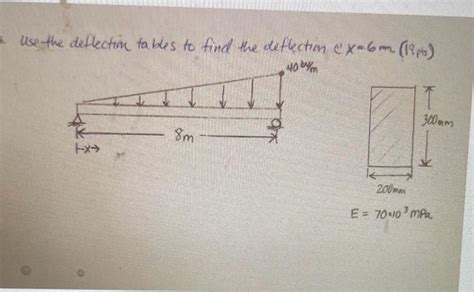 Use the deflection tables to find the deflection @ x=6m (19pts)
40 kN/m
8m
x→
300mm
200mm
E = 70•10³ MPa